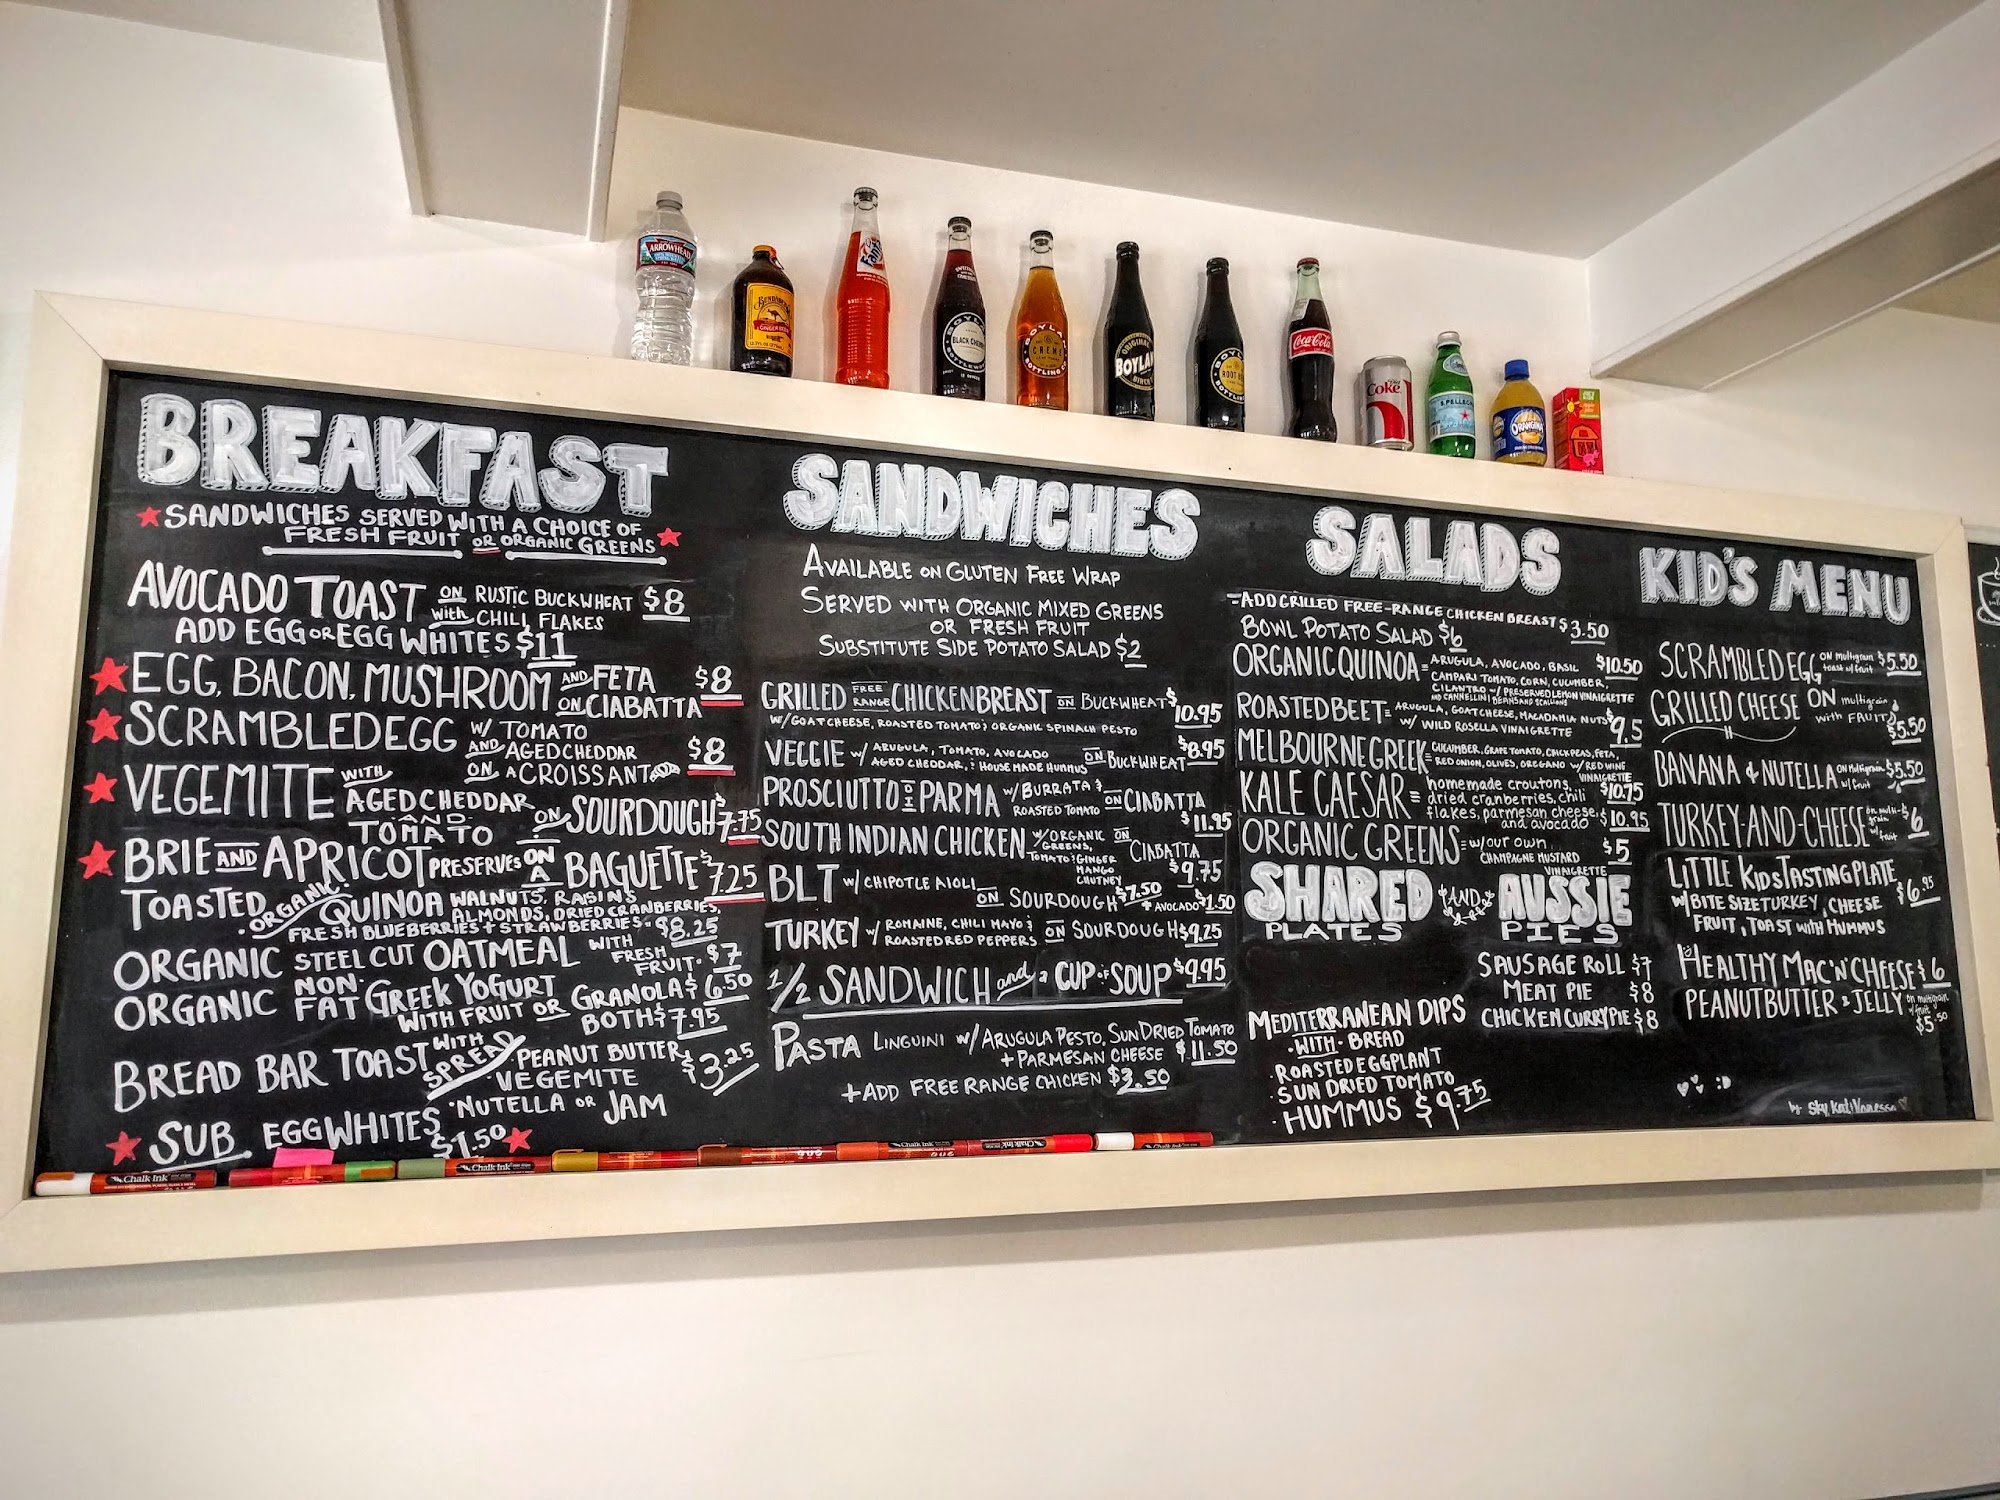 ARROWHEAD
BUNDABERG
GINGER BEER
Fanta
BOYLAN
BLACK CHERRY
BOTTLEWORKS
BOYLAN
CREME
BOTTLING CO
ORIGINAL
BOYLAN
BIRCH
BOYLAN
ROOT BEER
BOTTLING
Coca-Cola
Coke
S.PELLEGRINO
ORANGINA
BREAKFAST
SANDWICHES SERVED WITH A CHOICE OF
FRESH FRUIT OR ORGANIC GREENS
AVOCADO TOAST ON RUSTIC BUCKWHEAT $8
with CHILI FLAKES
ADD EGG OR EGG WHITES $11
EGG, BACON, MUSHROOM AND FETA $8
ON CIABATTA
SCRAMBLED EGG W/ TOMATO
AND AGED CHEDDAR $8
ON A CROISSANT
VEGEMITE WITH
AGED CHEDDAR ON SOURDOUGH $7.75
AND
TOMATO
BRIE AND APRICOT PRESERVES ON A BAGUETTE $7.25
TOASTED ORGANIC QUINOA WALNUTS, RAISINS
ALMONDS, DRIED CRANBERRIES,
FRESH BLUEBERRIES + STRAWBERRIES - $8.25
ORGANIC STEEL CUT OATMEAL WITH FRESH FRUIT - $7
ORGANIC NON-FAT GREEK YOGURT
WITH FRUIT OR GRANOLA $6.50
BOTH $7.95
BREAD BAR TOAST WITH SPREAD
PEANUT BUTTER, $3.25
VEGEMITE
NUTELLA OR JAM
SUB EGG WHITES $1.50
SANDWICHES
AVAILABLE ON GLUTEN FREE WRAP
SERVED WITH ORGANIC MIXED GREENS
OR FRESH FRUIT
SUBSTITUTE SIDE POTATO SALAD $2
GRILLED FREE RANGE CHICKEN BREAST ON BUCKWHEAT $10.95
W/ GOAT CHEESE, ROASTED TOMATO & ORGANIC SPINACH PESTO
VEGGIE W/ ARUGULA, TOMATO, AVOCADO $8.95
AGED CHEDDAR, & HOUSE MADE HUMMUS ON BUCKWHEAT
PROSCIUTTO DI PARMA W/ BURRATA &
ROASTED TOMATO ON CIABATTA $11.95
SOUTH INDIAN CHICKEN W/ ORGANIC GREENS,
TOMATO & GINGER MANGO CHUTNEY ON CIABATTA $9.75
BLT W/ CHIPOTLE AIOLI ON SOURDOUGH $7.50
+ AVOCADO $1.50
TURKEY W/ ROMAINE, CHILI MAYO &
ROASTED RED PEPPERS ON SOURDOUGH $9.25
1/2 SANDWICH and a CUP of SOUP $9.95
PASTA LINGUINI W/ ARUGULA PESTO, SUN DRIED TOMATO
+ PARMESAN CHEESE $11.50
+ ADD FREE RANGE CHICKEN $3.50
SALADS
ADD GRILLED FREE-RANGE CHICKEN BREAST $3.50
BOWL POTATO SALAD $6
ORGANIC QUINOA = ARUGULA, AVOCADO, BASIL $10.50
CAMPARI TOMATO, CORN, CUCUMBER,
CILANTRO W/ PRESERVED LEMON VINAIGRETTE
AND CANNELLINI BEANS AND SCALLIONS
ROASTED BEET = ARUGULA, GOAT CHEESE, MACADAMIA NUTS $9.5
W/ WILD ROSELLA VINAIGRETTE
MELBOURNE GREEK = CUCUMBER, GRAPE TOMATO, CHICKPEAS, FETA,
RED ONION, OLIVES, OREGANO W/ RED WINE
VINAIGRETTE $10.75
KALE CAESAR = homemade croutons,
dried cranberries, chili
flakes, parmesan cheese,
and avocado $10.95
ORGANIC GREENS = w/ our own $5
CHAMPAGNE MUSTARD
VINAIGRETTE
SHARED PLATES AND AUSSIE PIES
SAUSAGE ROLL $7
MEAT PIE $8
CHICKEN CURRY PIE $8
MEDITERRANEAN DIPS
WITH BREAD
ROASTED EGGPLANT
SUN DRIED TOMATO
HUMMUS $9.75
KID'S MENU
SCRAMBLED EGG on multigrain toast w/ fruit $5.50
GRILLED CHEESE ON multigrain
with FRUIT $5.50
BANANA & NUTELLA on multigrain w/ fruit $5.50
TURKEY-AND-CHEESE on multi-grain w/ fruit $6
LITTLE KIDS TASTING PLATE $6.95
W/ BITE SIZE TURKEY, CHEESE
FRUIT, TOAST WITH HUMMUS
HEALTHY MAC 'N' CHEESE $6
PEANUT BUTTER & JELLY on multigrain w/ fruit $5.50
by: Sky, Kat & Vanessa
Chalk Ink
Chalk Ink
Chalk Ink
Chalk Ink